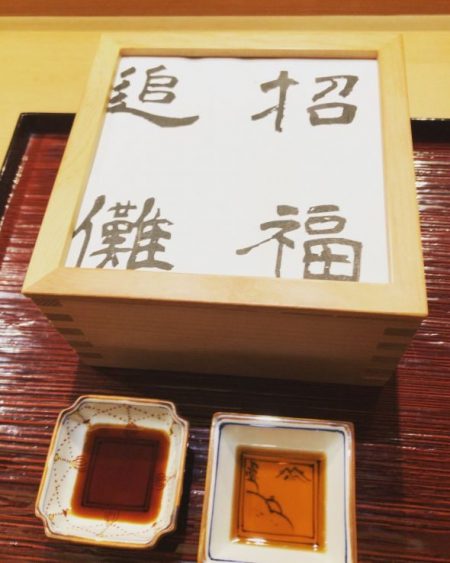 招福
追儺